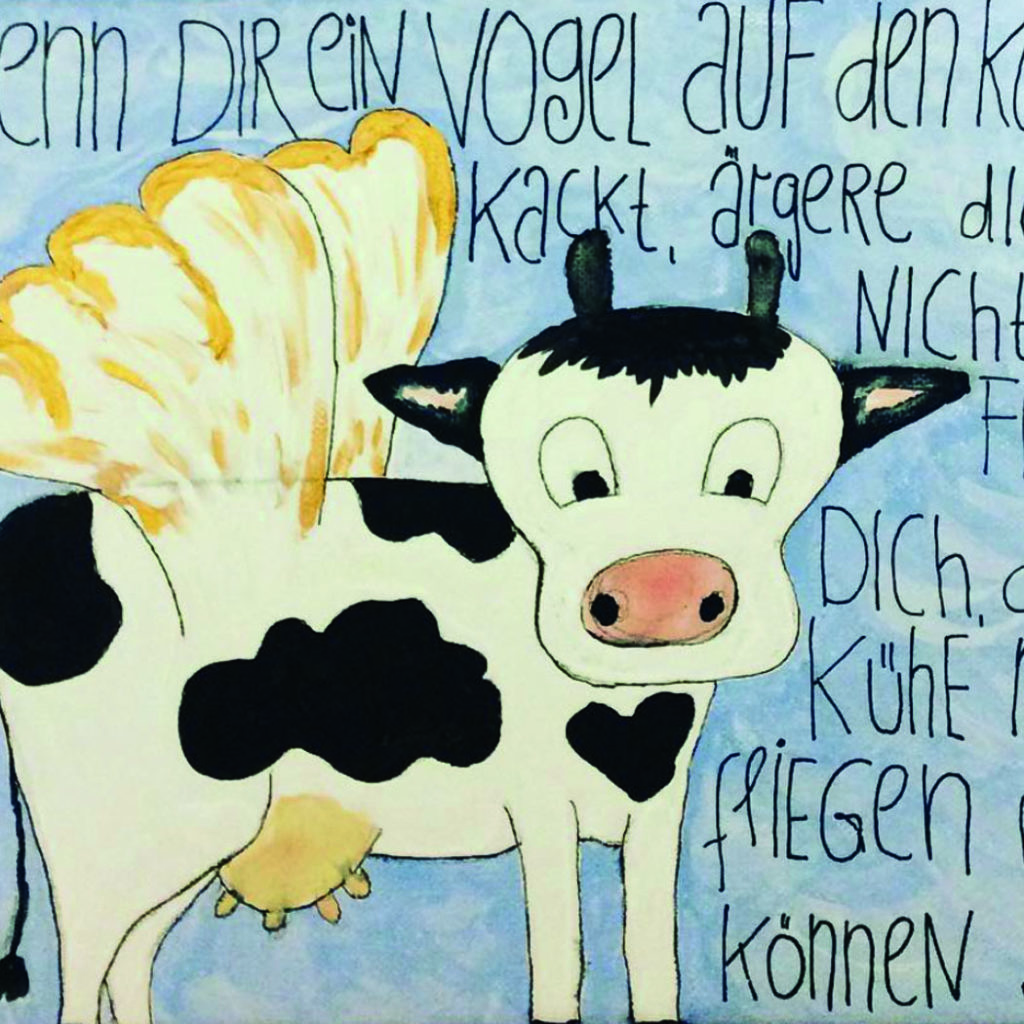 enn DIR EiN VOGEL AUF den Ko
KacKt, ärgeRE dIc
NICht
F
DICh, d
KühE n
flIEGen
KönneN